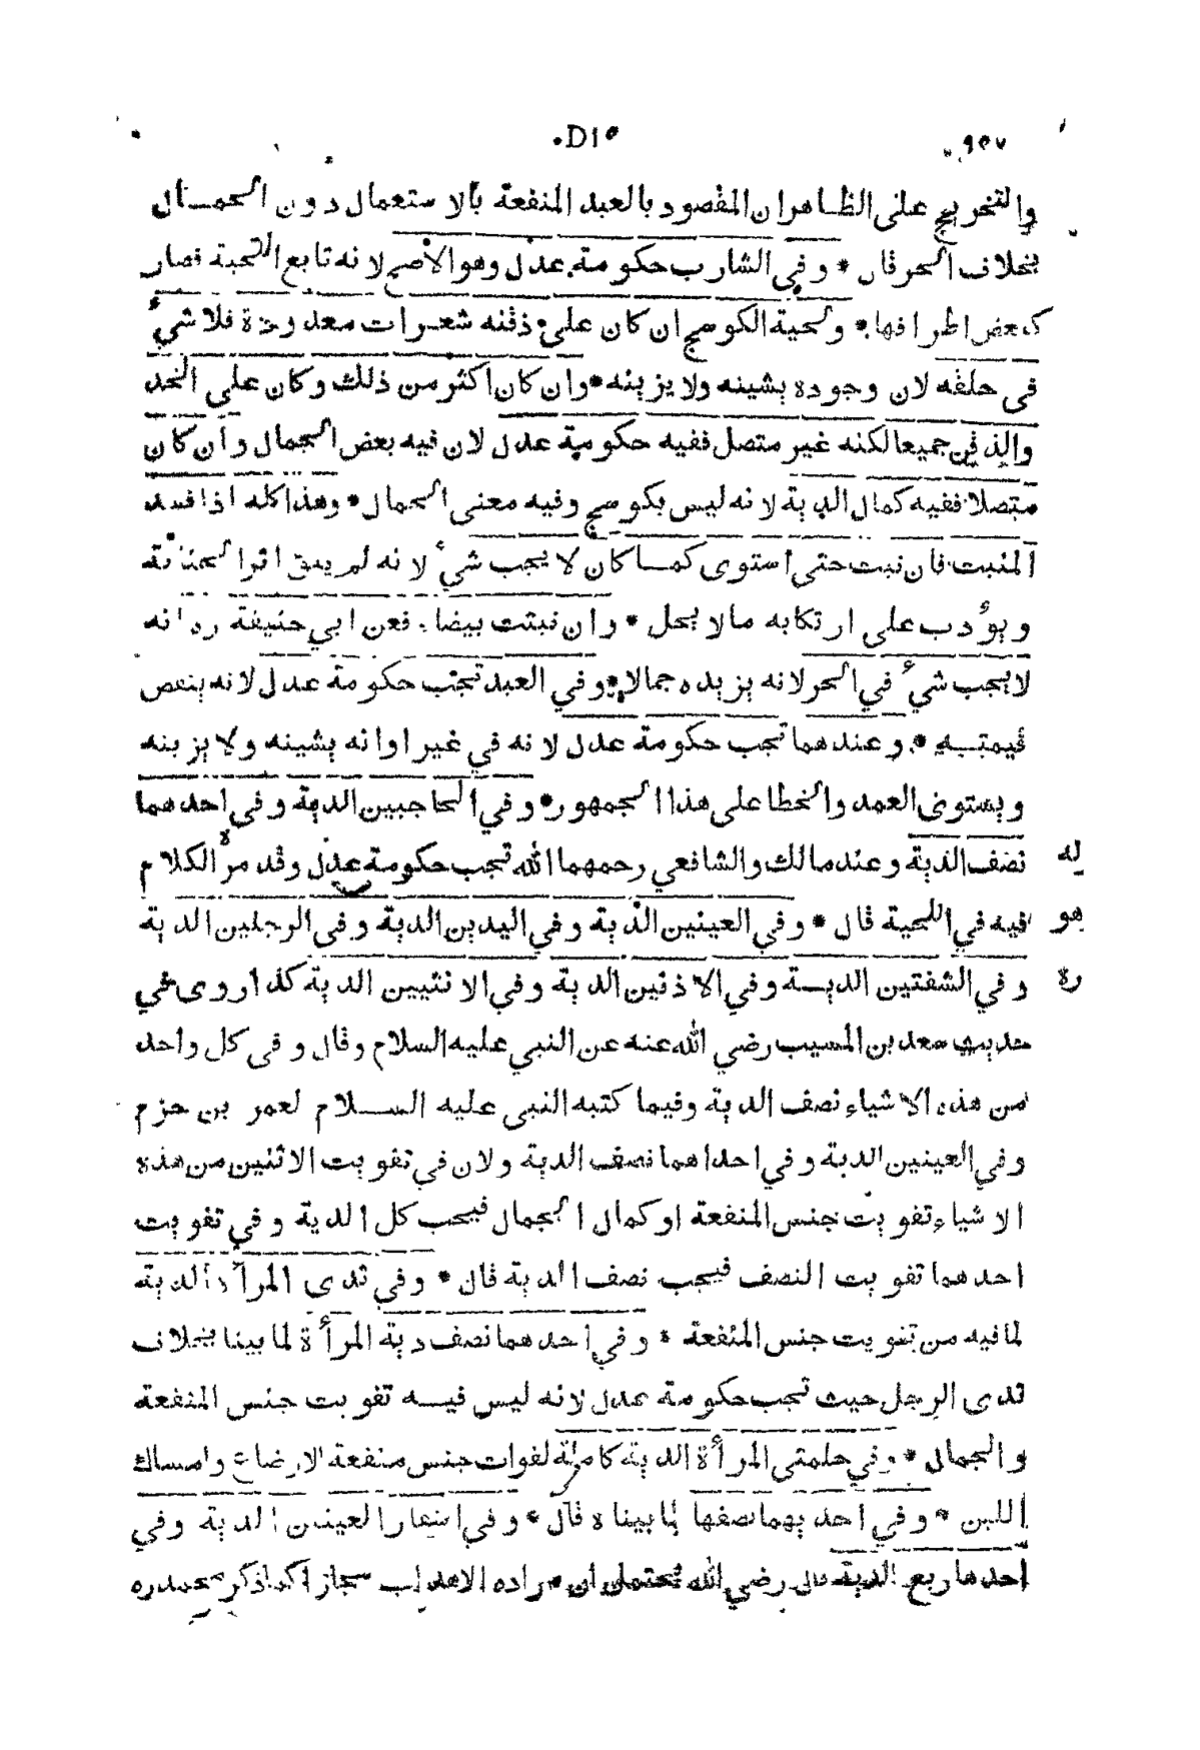 ٩٥٧ .D١٥.
والتخريج على الظاهر ان المقصود بالعبد المنفعة بالاستعمال دون الجمال
بخلاف الحر قال * وفي الشارب حكومة عدل وهو الأصح لانه تابع للحية فصار
كبعض اطرافها * ولحية الكوسج ان كان على ذقنه شعرات معدودة فلا شيء
في حلقه لان وجوده يشينه ولا يزينه * وان كان اكثر من ذلك وكان على الخد
والذقن جميعا لكنه غير متصل ففيه حكومة عدل لان فيه بعض الجمال وان كان
متصلا ففيه كمال الدية لانه ليس بكوسج وفيه معنى الجمال * وهذا كله اذا فسد
المنبت فان نبت حتى استوى كما كان لا يجب شيء لانه لم يبق اثر الجناية
ويؤدب على ارتكابه مالا يحل * وان نبتت بيضاء فعن ابي حنيفة ره انه
لا يجب شيء في الحر لانه يزيده جمالا * وفي العبد تجب حكومة عدل لانه ينقص
قيمته * وعندهما تجب حكومة عدل لانه في غير اوانه يشينه ولا يزينه
ويستوى العمد والخطا على هذا الجمهور * وفي الحاجبين الدية وفي احدهما
نصف الدية وعند مالك والشافعي رحمهما الله تجب حكومة عدل وقد مر الكلام له
فيه في اللحية قال * وفي العينين الدية وفي اليدين الدية وفي الرجلين الدية هو
وفي الشفتين الدية وفي الاذنين الدية وفي الانثيين الدية كذا روى في ره
حديث سعد بن المسيب رضي الله عنه عن النبي عليه السلام وقال وفي كل واحد
من هذه الاشياء نصف الدية وفيما كتبه النبي عليه السلام لعمر بن حزم
وفي العينين الدية وفي احداهما نصف الدية ولان في تفويت الاثنين من هذه
الاشياء تفويت جنس المنفعة او كمال الجمال فيجب كل الدية وفي تفويت
احدهما تفويت النصف فيجب نصف الدية قال * وفي ثدى المرأة الدية
لما فيه من تفويت جنس المنفعة * وفي احدهما نصف دية المرأة لما بينا بخلاف
ثدى الرجل حيث تجب حكومة عدل لانه ليس فيه تفويت جنس المنفعة
والجمال * وفي حلمتي المرأة الدية كاملة لفوات جنس منفعة الارضاع وامساك
اللبن * وفي احديهما نصفها لما بيناه قال * وفي اشفار العينين الدية وفي
احدها ربع الدية قال رضي الله يحتمل ان مراده الاهداب مجازا كما ذكر محمد ره